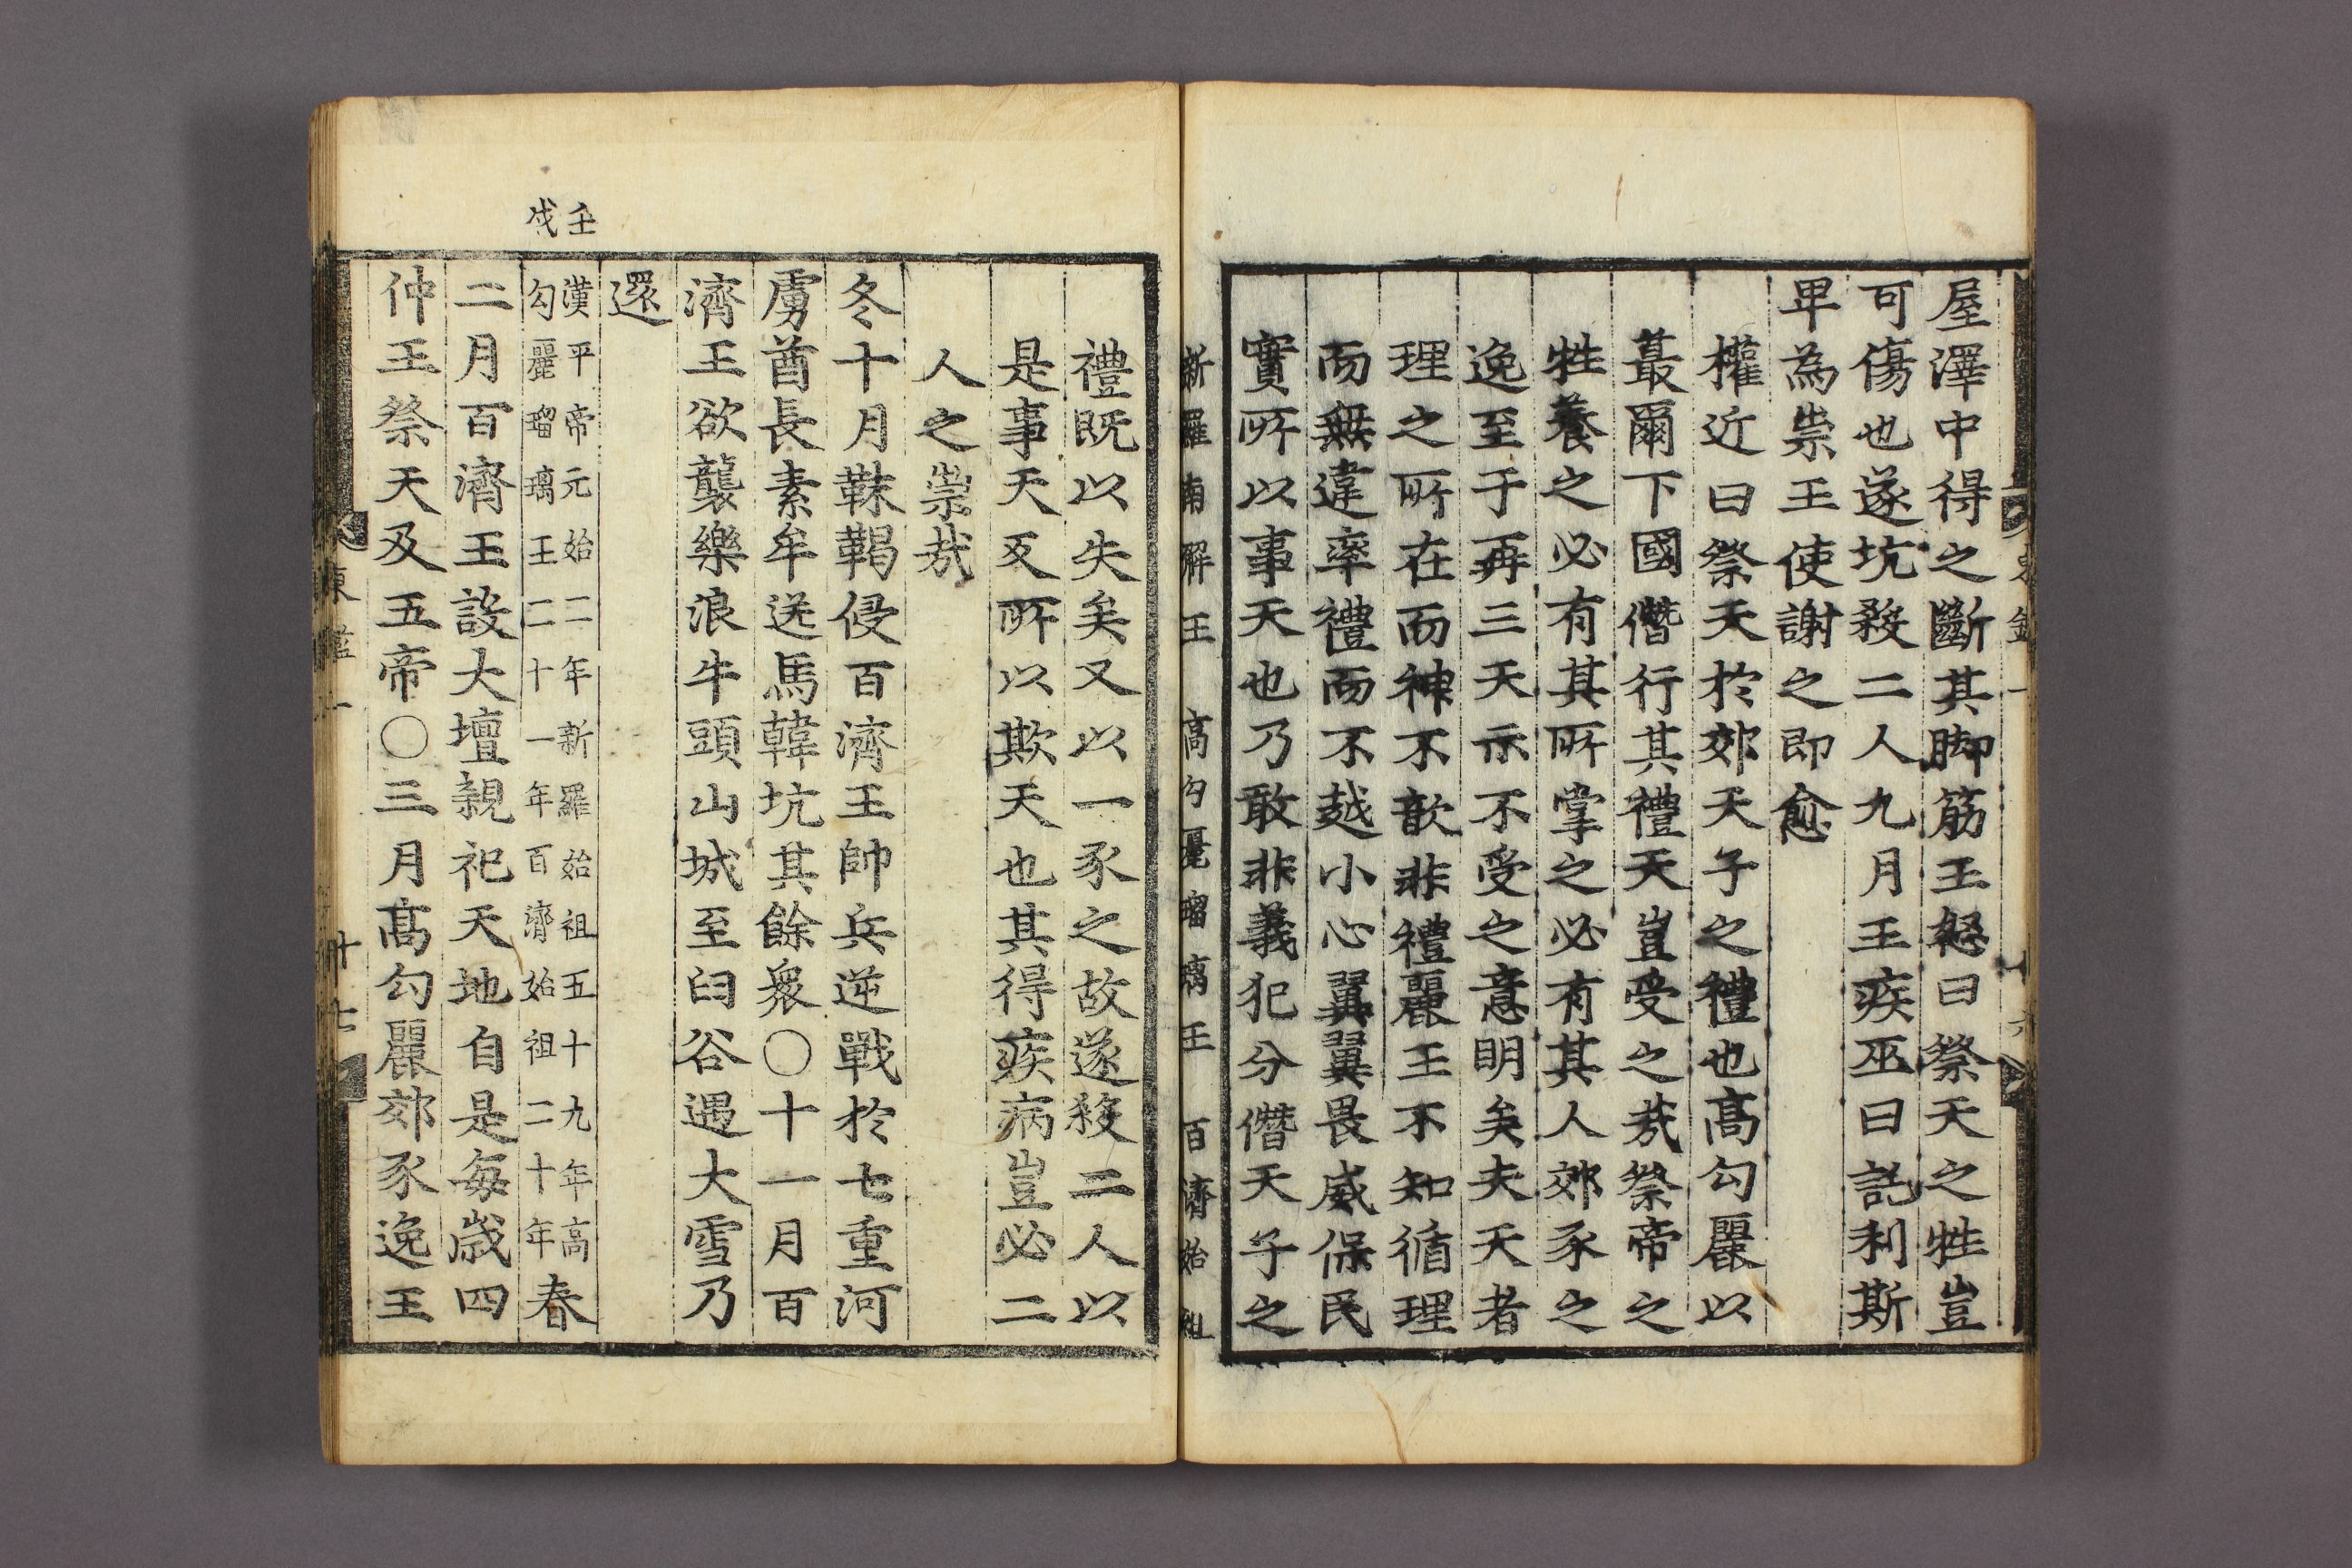 屋澤中得之斷其脚筋王怒曰祭天之牲豈
可傷也遂坑殺二人九月王疾巫曰託利斯
卑為祟王使謝之即愈
權近曰祭天於郊天子之禮也高勾麗以
蕞爾下國僭行其禮天豈受之㢤祭帝之
牲養之必有其所掌之必有其人郊豕之
逸至于再三天示不受之意明矣夫天者
理之所在而神不歆非禮麗王不知循理
而無違率禮而不越小心翼翼畏威保民
實所以事天也乃敢非義犯分僭天子之
新羅南解王 高勾麗瑠璃王 百濟始祖
禮既以失矣又以一豕之故遂殺二人以
是事天反所以欺天也其得疾病豈必二
人之祟㢤
冬十月靺鞨侵百濟王帥兵逆戰於七重河
虜酋長素牟送馬韓坑其餘衆〇十一月百
濟王欲襲樂浪牛頭山城至臼谷遇大雪乃
還
壬戌
漢平帝元始二年新羅始祖五十九年高
勾麗瑠璃王二十一年百濟始祖二十年春
二月百濟王設大壇親祀天地自是每歲四
仲王祭天及五帝〇三月高勾麗郊豕逸王
東鑑一 十七